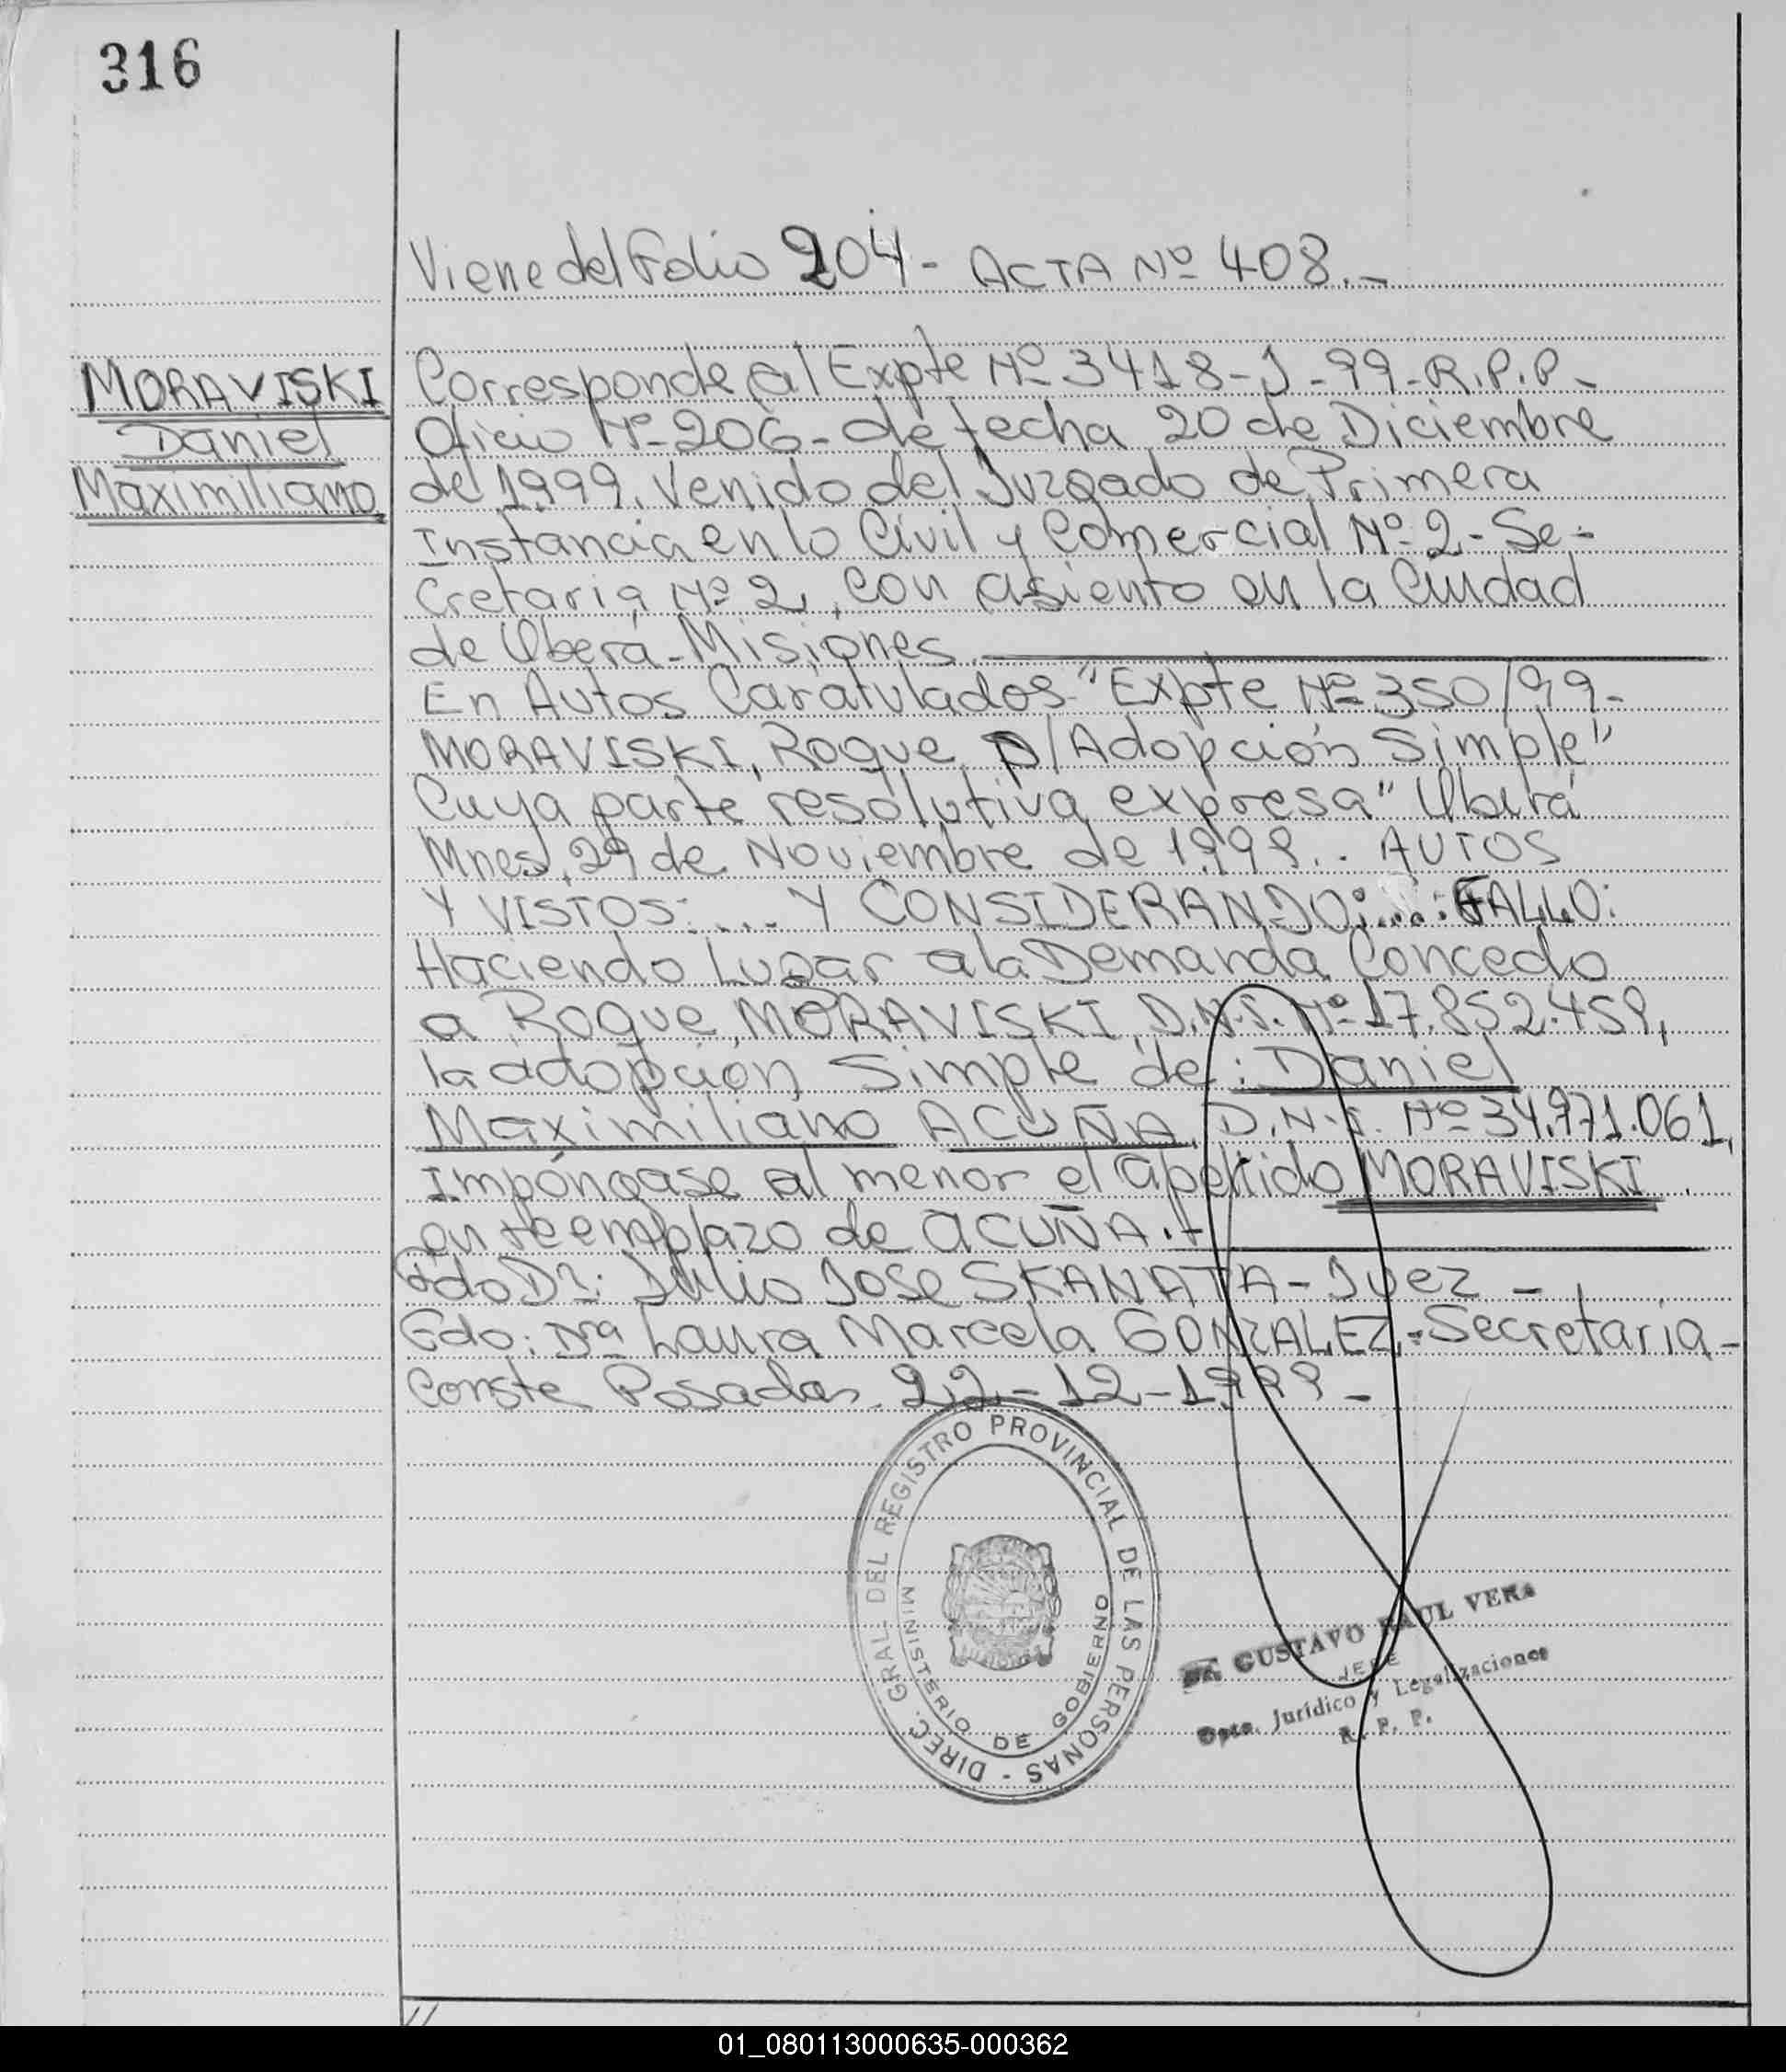 316
Viene del Folio 204 - ACTA Nº 408.-
MORAVISKI
Daniel
Maximiliano
Corresponde al Expte Nº 3418-J-99-R.P.P-
Oficio Nº 206- de fecha 20 de Diciembre
del 1999, Venido del Juzgado de Primera
Instancia en lo Civil y Comercial Nº 2- Se-
cretaria Nº 2, con asiento en la Ciudad
de Oberá-Misiones.
En Autos Caratulados "Expte Nº 350/99-
MORAVISKI, Roque S/Adopción Simple"
Cuya parte resolutiva expresa "Oberá
Mnes, 29 de Noviembre de 1999.. AUTOS
Y VISTOS:.... Y CONSIDERANDO:...:FALLO:
Haciendo Lugar a la Demanda Concedo
a Roque MORAVISKI, D.N.I. Nº 17.852.459,
la adopción Simple de: Daniel
Maximiliano ACUÑA, D.N.I. Nº 34.971.061,
Impóngase al menor el apellido MORAVISKI
en reemplazo de ACUÑA.-
Fdo Dr: Julio Jose SKANATA - Juez -
Fdo: Dra Laura Marcela GONZALEZ - Secretaria -
Conste Posadas 22-12-1999 -
DIREC. GRAL. DEL REGISTRO PROVINCIAL DE LAS PERSONAS -
MINISTERIO DE GOBIERNO
Dr. GUSTAVO RAUL VERA
JEFE
Dpto. Jurídico y Legalizaciones
R. P. P.
01_080113000635-000362